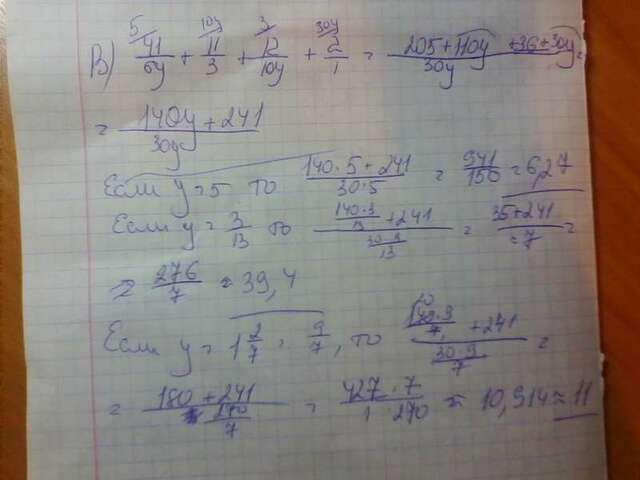 В) 41/6y (5) + 11/3 (10y) + 12/10y (3) + 2/1 (30y) = (205+110y+36+30y)/30y =
= (140y+241)/30y
Если y=5 то (140·5+241)/(30·5) = 941/150 = 6,27
Если y = 3/13 то (140·3/13+241)/(30·3/13) = (35+241)/7 =
= 276/7 = 39,4
Если y = 1 2/7 = 9/7, то (140·9/7+241)/(30·9/7) =
= (180+241)/(270/7) = 427·7/(1·270) = 10,914≈11